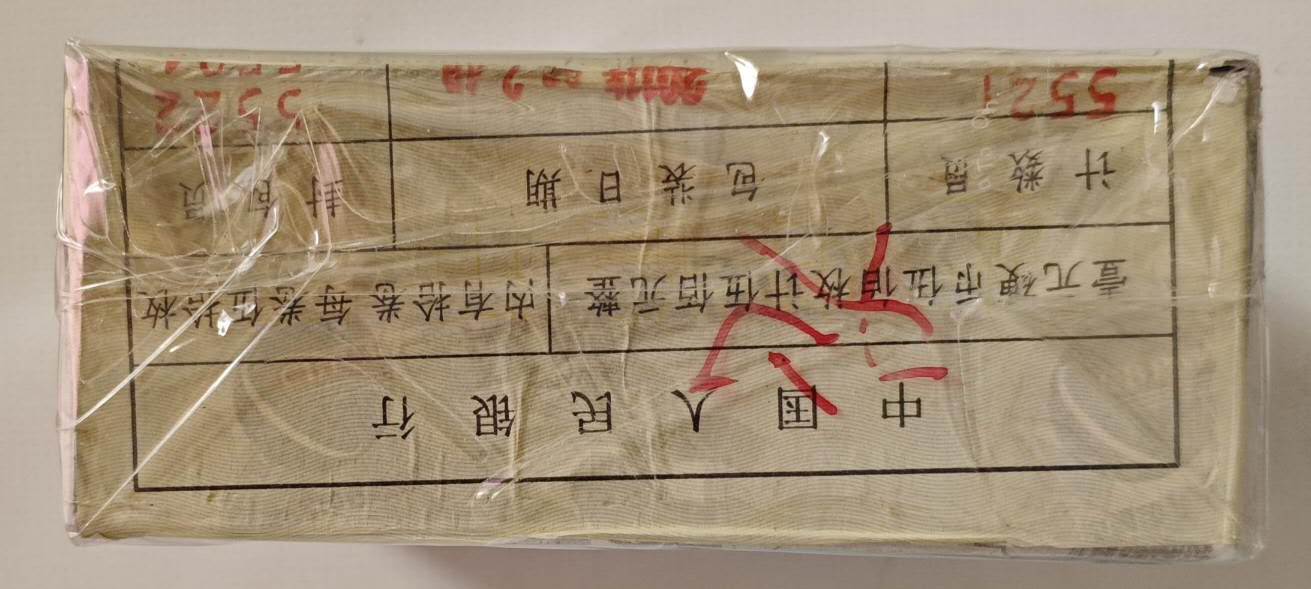 中国人民银行
壹元硬币伍佰枚计伍佰元整 内有拾卷每卷伍拾枚
计数员 包装日期 封包员
5521 5522